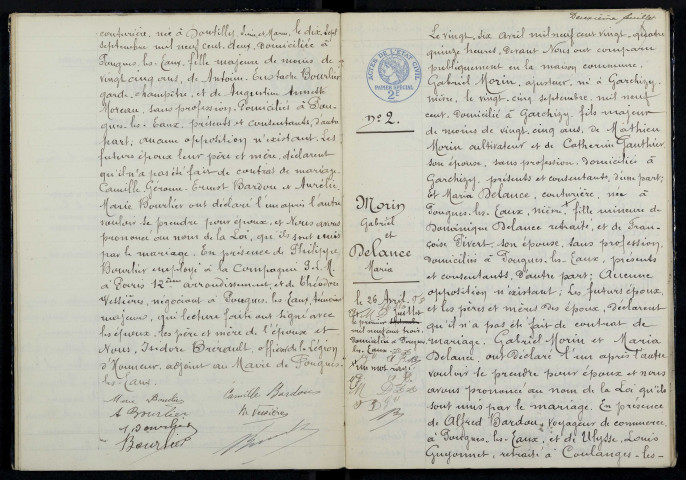 couturière, née à Dontilly, Seine et Marne, le dix sept
septembre mil neuf cent deux, domiciliée à
Pougues-les-Eaux, fille majeure de moins de
vingt cinq ans, de Antoine Eustache Bourlier
garde champêtre, et de Augustine Annette
Moreau, sans profession, domiciliés à Pou-
gues-les-Eaux, présents et consentants, d'autre
part, aucune opposition n'existant. Les
futurs époux, leur père et mère, déclarent
qu'il n'a pas été fait de contrat de mariage.
Camille Gérôme Ernest Bardou et Aurélie
Marie Bourlier ont déclaré l'un après l'autre
vouloir se prendre pour époux, et Nous avons
prononcé au nom de la Loi, qu'ils sont unis
par le mariage. En présence de Philippe
Bourlier employé à la Compagnie P.L.M.
à Paris 12ème arrondissement, et de Théodore
Vessières, négociant à Pougues-les-Eaux, témoins
majeurs, qui lecture faite ont signé avec
les époux, les père et mère de l'épouse et
Nous, Isidore Brérault, officier de la Légion
d'Honneur, adjoint au Maire de Pougues-
les-Eaux.
Marie Bourlier Camille Bardou
A Bourlier Vessières
Bourlier
Deuxième feuillet
ACTES DE L'ETAT CIVIL
PAPIER SPECIAL
2F
N° 2.
Morin
Gabriel
et
Delance
Maria
le 26 Avril
juillet
le premier
mil neuf cent trois
domiciliée à Pougues
les-Eaux
Le vingt six avril mil neuf cent vingt quatre
quinze heures, devant Nous ont comparu
publiquement en la maison commune,
Gabriel Morin, ajusteur, né à Garchizy,
Nièvre, le vingt cinq septembre mil neuf
cent, domicilié à Garchizy, fils majeur
de moins de vingt cinq ans, de Mathieu
Morin cultivateur et de Catherine Gauthier
son épouse, sans profession, domiciliés à
Garchizy, présents et consentants, d'une part;
et Maria Delance, couturière, née à
Pougues-les-Eaux, Nièvre, fille mineure de
Dominique Delance retraité, et de Fran-
çoise Divert, son épouse, sans profession,
domiciliés à Pougues-les-Eaux, présents
et consentants, d'autre part; Aucune
opposition n'existant; Les futurs époux,
et les pères et mères des époux, déclarent
qu'il n'a pas été fait de contrat de
mariage. Gabriel Morin et Maria
Delance, ont déclaré l'un après l'autre
vouloir se prendre pour époux et nous
avons prononcé au nom de la Loi qu'ils
sont unis par le mariage. En présence
de Alfred Bardou, Voyageur de commerce,
à Pougues-les-Eaux, et de Ulysse, Louis
Guyonnet, retraité à Coulanges-les-